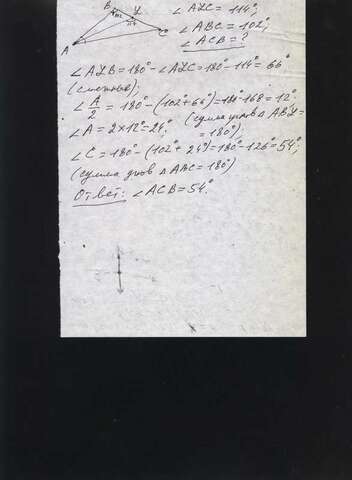 ∠ALC = 114°,
∠ABC = 102°,
∠ACB = ?
B
L
A
C
∠ALB = 180° - ∠ALC = 180° - 114° = 66°
(смежные);
∠A/2 = 180° - (102° + 66°) = 180° - 168 = 12°
(сумма углов △ABL = 180°);
∠A = 2×12° = 24°,
∠C = 180° - (102° + 24°) = 180° - 126° = 54°,
(сумма углов △ABC = 180°)
Ответ: ∠ACB = 54°